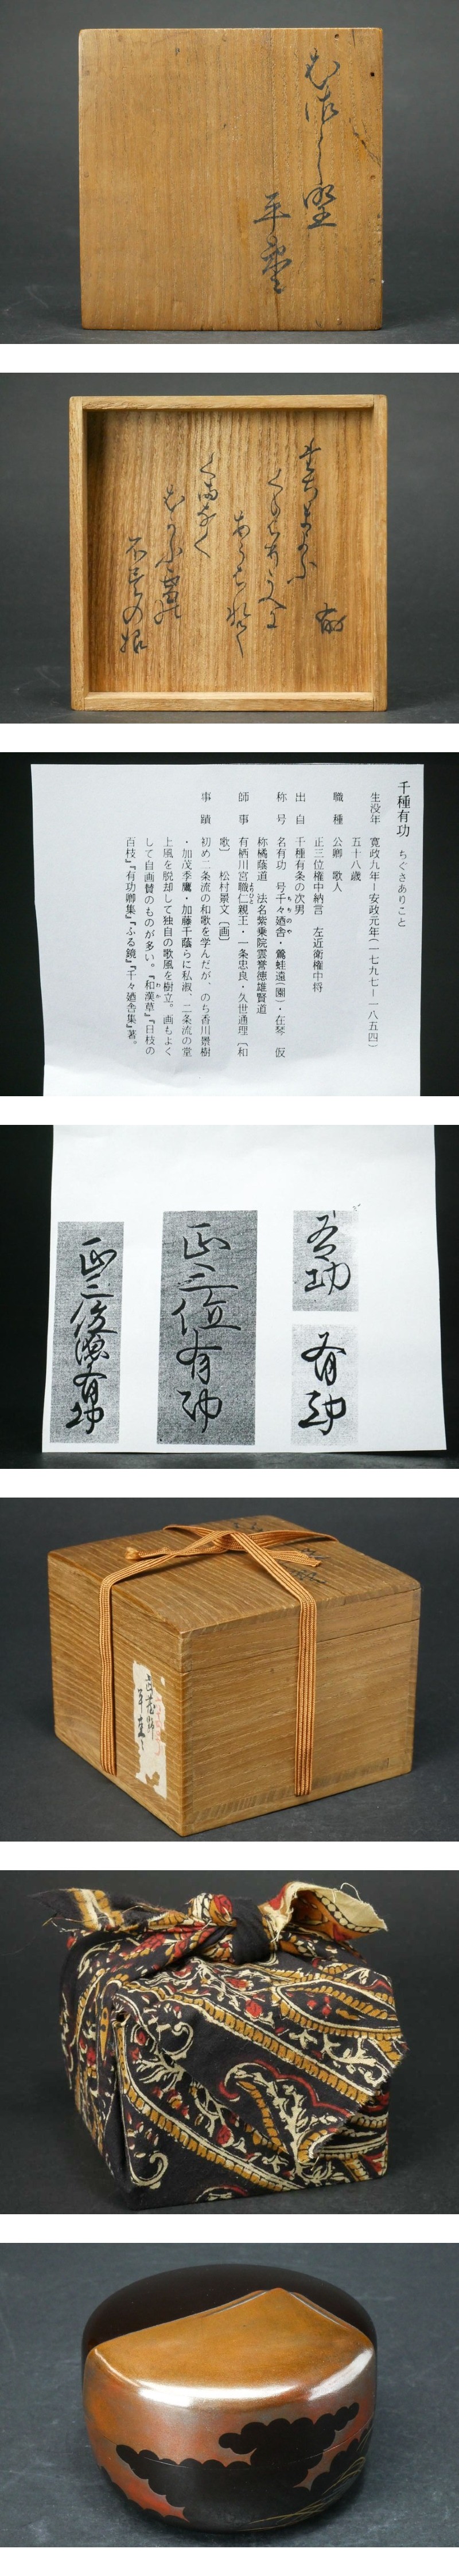 むさし野
平棗
千種有功 ちぐさありこと
生没年 寛政九年―安政元年(一七九七―一八五四)
五十八歳
職種 公卿 歌人
正三位権中納言 左近衛権中将
出自 千種有条の次男
称号 名有功 号千々廼舎・鶯蛙遠(園)・在琴 仮
称橘蔭道 法名紫乗院雲誉徳雄賢道
師事 有栖川宮職仁親王・一条忠良・久世通理〔和
歌〕 松村景文〔画〕
事蹟 初め二条流の和歌を学んだが、のち香川景樹
・加茂季鷹・加藤千蔭らに私淑、二条流の堂
上風を脱却して独自の歌風を樹立。画もよく
して自画賛のものが多い。『和漢草』『日枝の
百枝』『有功卿集』『ふる鏡』『千々廼舎集』著。
有功
有功
正三位有功
正三位源有功
武蔵野
平棗